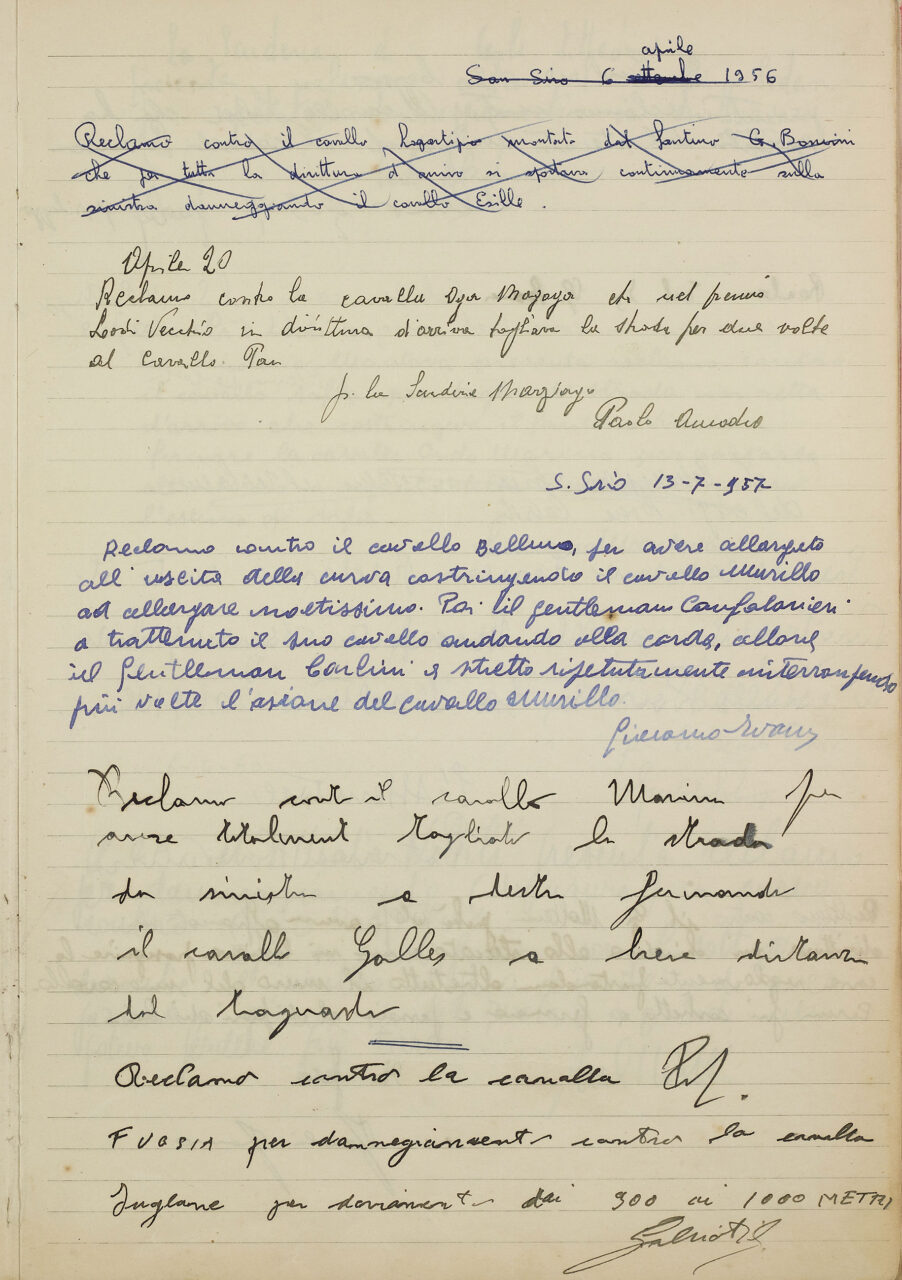 aprile
San Siro 6 settembre 1956
Reclamo contro il cavallo montato dal fantino G. Bonsioni
che per tutta la dirittura d'arrivo si spostava continuamente sulla
sinistra danneggiando il cavallo Esille.
Aprile 20
Reclamo contro la cavalla che nel premio
Lodi Vecchio in dirittura d'arriva tagliava la strada per due volte
al cavallo Pan
p. la Scuderia
Paolo Amodeo
S. Siro 13-7-957
Reclamo contro il cavallo Belluno, per avere allargato
all'uscita della curva costringendo il cavallo Murillo
ad allargare moltissimo. Poi il gentlemam Confalonieri
a trattenuto il suo cavallo andando alla corda, allora
il Gentleman Carlini a stretto ripetutamente interrompendo
più volte l'azione del cavallo Murillo.
Giacomo
Reclamo cont il cavallo per
avere totalment tagliato la strada
da sinistra a destra fermando
il cavallo Galles a breve distanza
dal traguardo
Reclamo contro la cavalla
FUCSIA per dannegiamento contro la cavalla
Juglane per dai 900 ai 1000 METRI